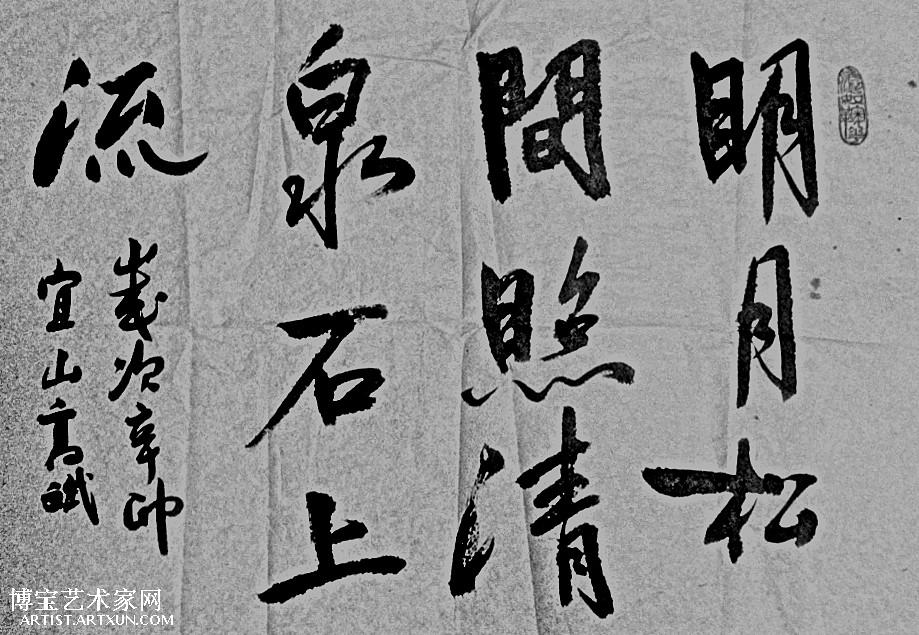 明月松
間照清
泉石上
流
歲次辛卯
宜山高
博宝艺术家网
ARTIST.ARTXUN.COM